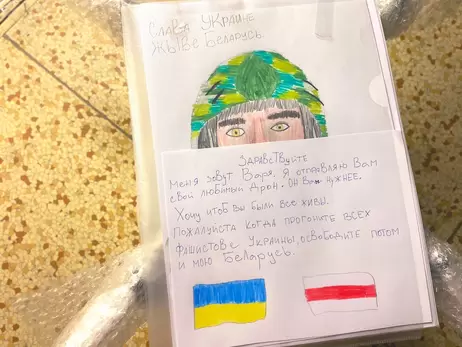 Слава Украине
Жыве Беларусь.
Здравствуйте
Меня зовут Варя. Я отправляю Вам
свой любимый дрон. Он Вам нужнее.
Хочу чтоб вы были все живы.
Пожалуйста когда прогоните всех
фашистов с Украины, освободите потом
и мою Беларусь.